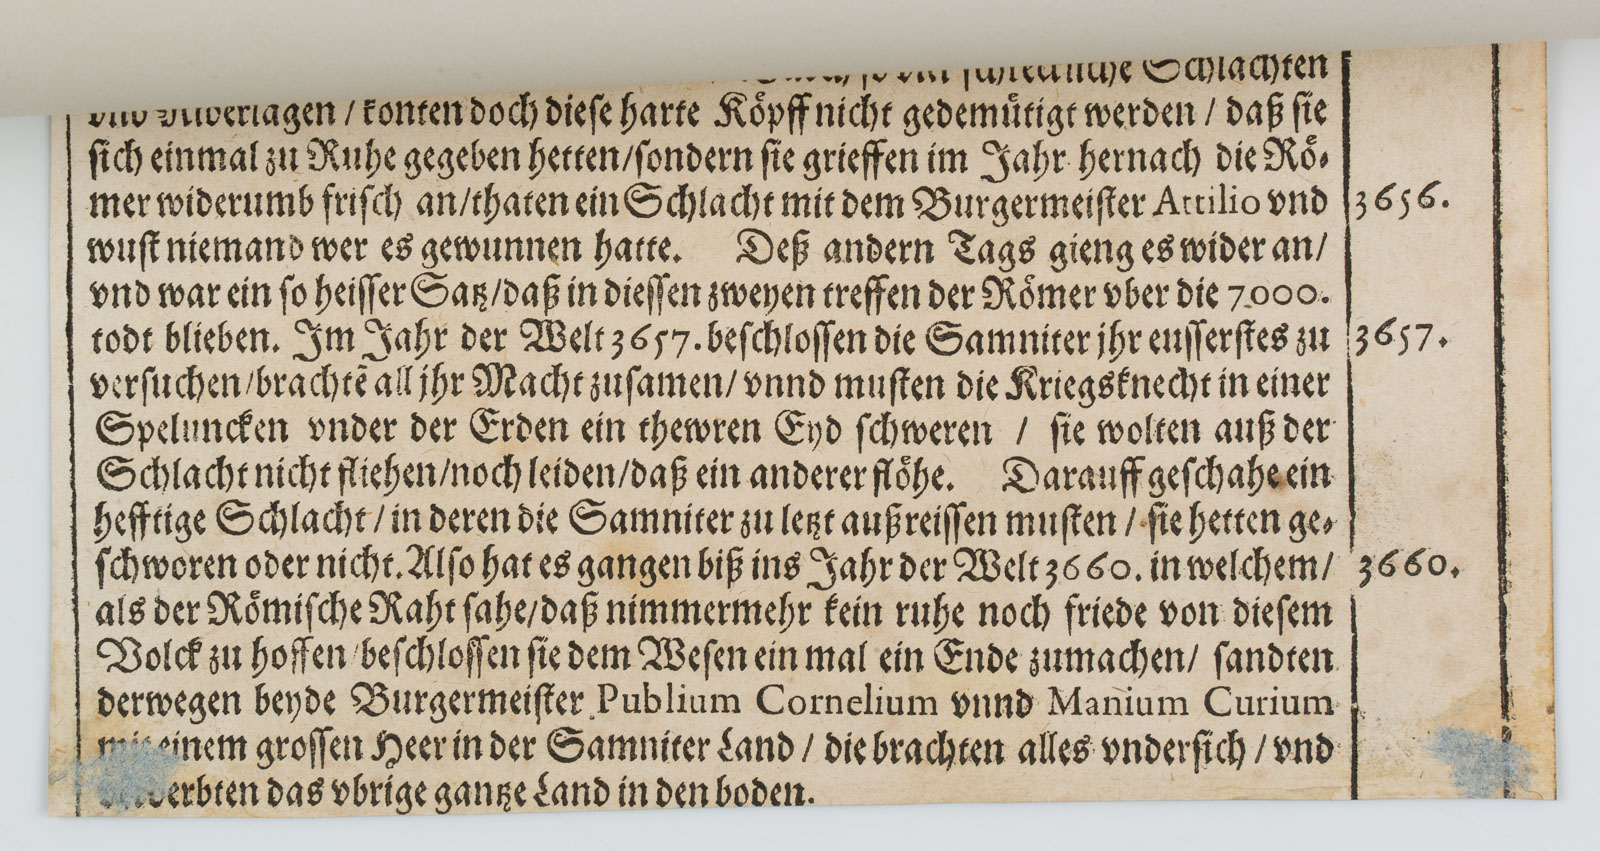 schreckliche Schlachten
vnd Niderlagen / konten doch diese harte Köpff nicht gedemütigt werden / daß sie
sich einmal zu Ruhe gegeben hetten/sondern sie grieffen im Jahr hernach die Rö-
mer widerumb frisch an/thaten ein Schlacht mit dem Burgermeister Attilio vnd 3656.
wust niemand wer es gewunnen hatte. Deß andern Tags gieng es wider an/
vnd war ein so heisser Satz/daß in diessen zweyen treffen der Römer vber die 7000.
todt blieben. Im Jahr der Welt 3657. beschlossen die Samniter jhr eusserstes zu 3657.
versuchen/brachtẽ all jhr Macht zusamen/ vnnd musten die Kriegsknecht in einer
Speluncken vnder der Erden ein thewren Eyd schweren / sie wolten auß der
Schlacht nicht fliehen/noch leiden/daß ein anderer flöhe. Darauff geschahe ein
hefftige Schlacht / in deren die Samniter zu letzt außreissen musten / sie hetten ge-
schworen oder nicht. Also hat es gangen biß ins Jahr der Welt 3660. in welchem/ 3660.
als der Römische Raht sahe/daß nimmermehr kein ruhe noch friede von diesem
Volck zu hoffen/beschlossen sie dem Wesen ein mal ein Ende zumachen/ sandten
derwegen beyde Burgermeister Publium Cornelium vnnd Manium Curium
mit einem grossen Heer in der Samniter Land / die brachten alles vndersich / vnd
verderbten das vbrige gantze Land in den boden.